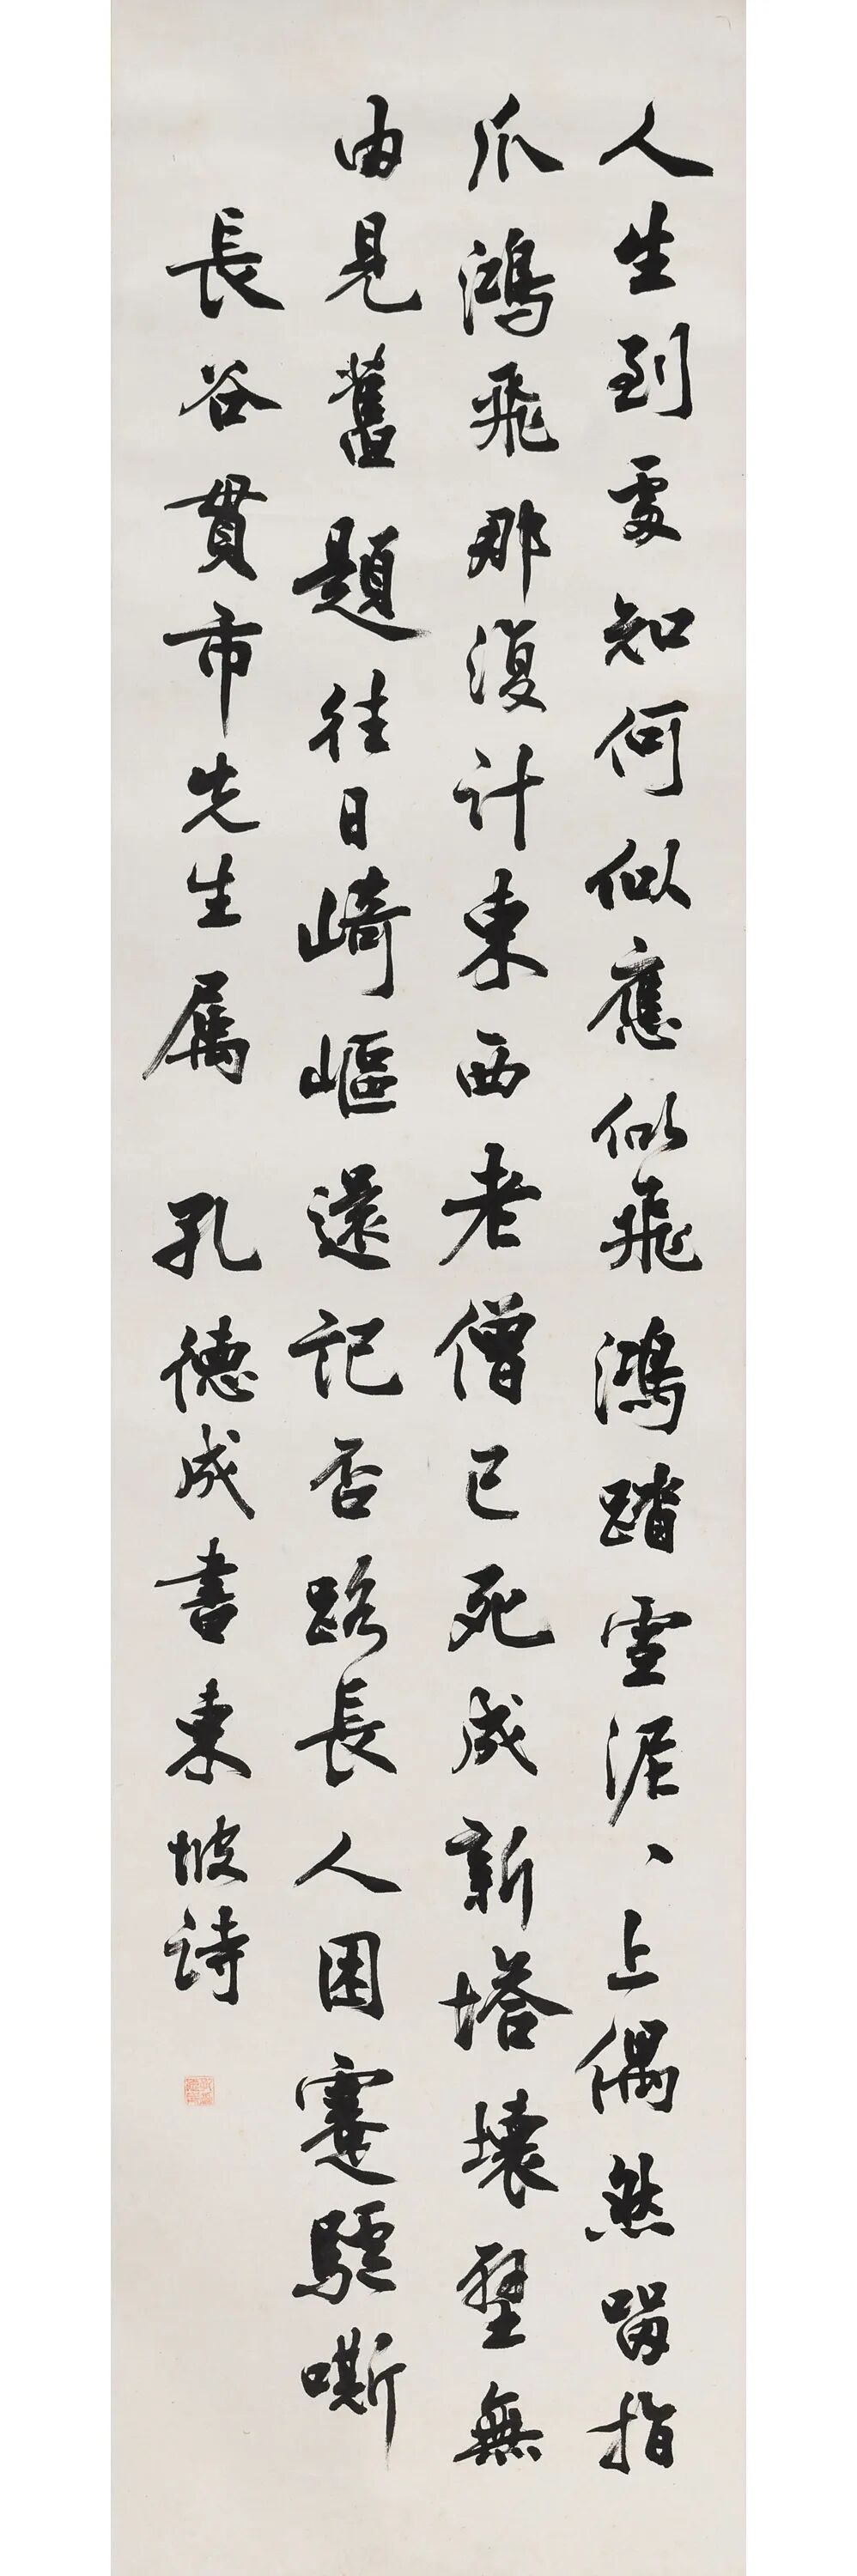 人生到處知何似應似飛鴻踏雪泥、上偶然留指
爪鴻飛那復計東西老僧已死成新塔壞壁無
由見舊題往日崎嶇還記否路長人困蹇驢嘶
長谷貫市先生屬 孔德成書東坡詩